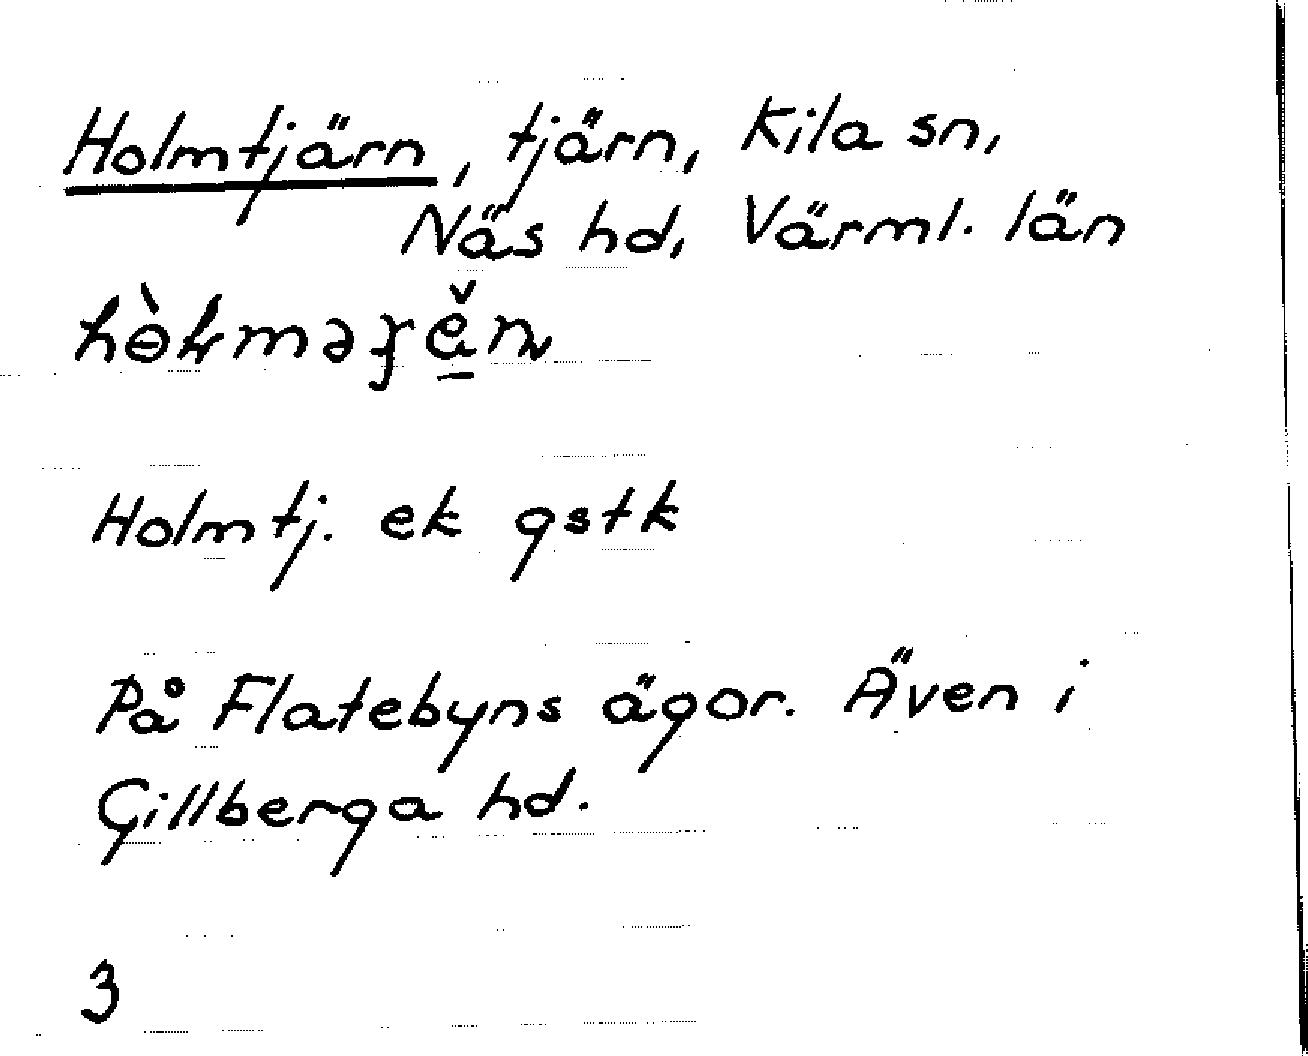 Holmtjärn, tjärn, Kila sn,
Näs hd, Värml. län
Holmtj. ek gstk
På Flatebyns ägor. Även i
Gillberga hd.
3